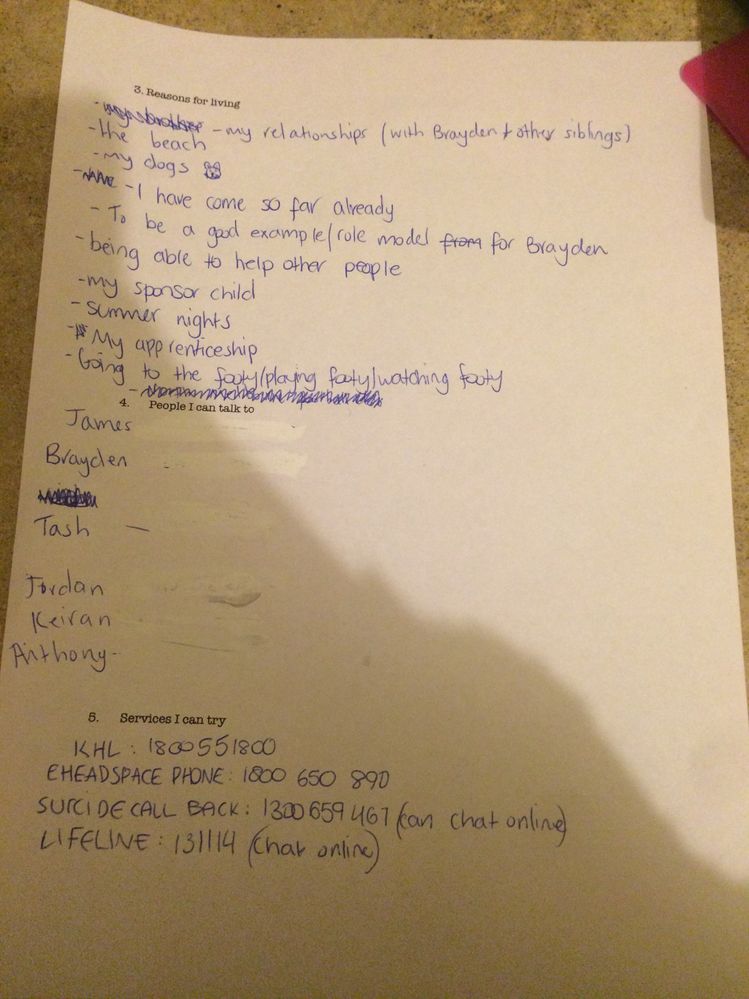 3. Reasons for living
- my relationships (with Brayden + other siblings)
- the beach
- my dogs
- I have come so far already
- To be a good example/role model from for Brayden
- being able to help other people
- my sponsor child
- summer nights
- My apprenticeship
- Going to the footy/playing footy/watching footy
4. People I can talk to
James
Brayden
Tash -
Jordan
Keiran
Anthony -
5. Services I can try
KHL : 1800551800
EHEADSPACE PHONE : 1800 650 890
SUICIDE CALL BACK : 1300 659 467 (can chat online)
LIFELINE : 131114 (chat online)